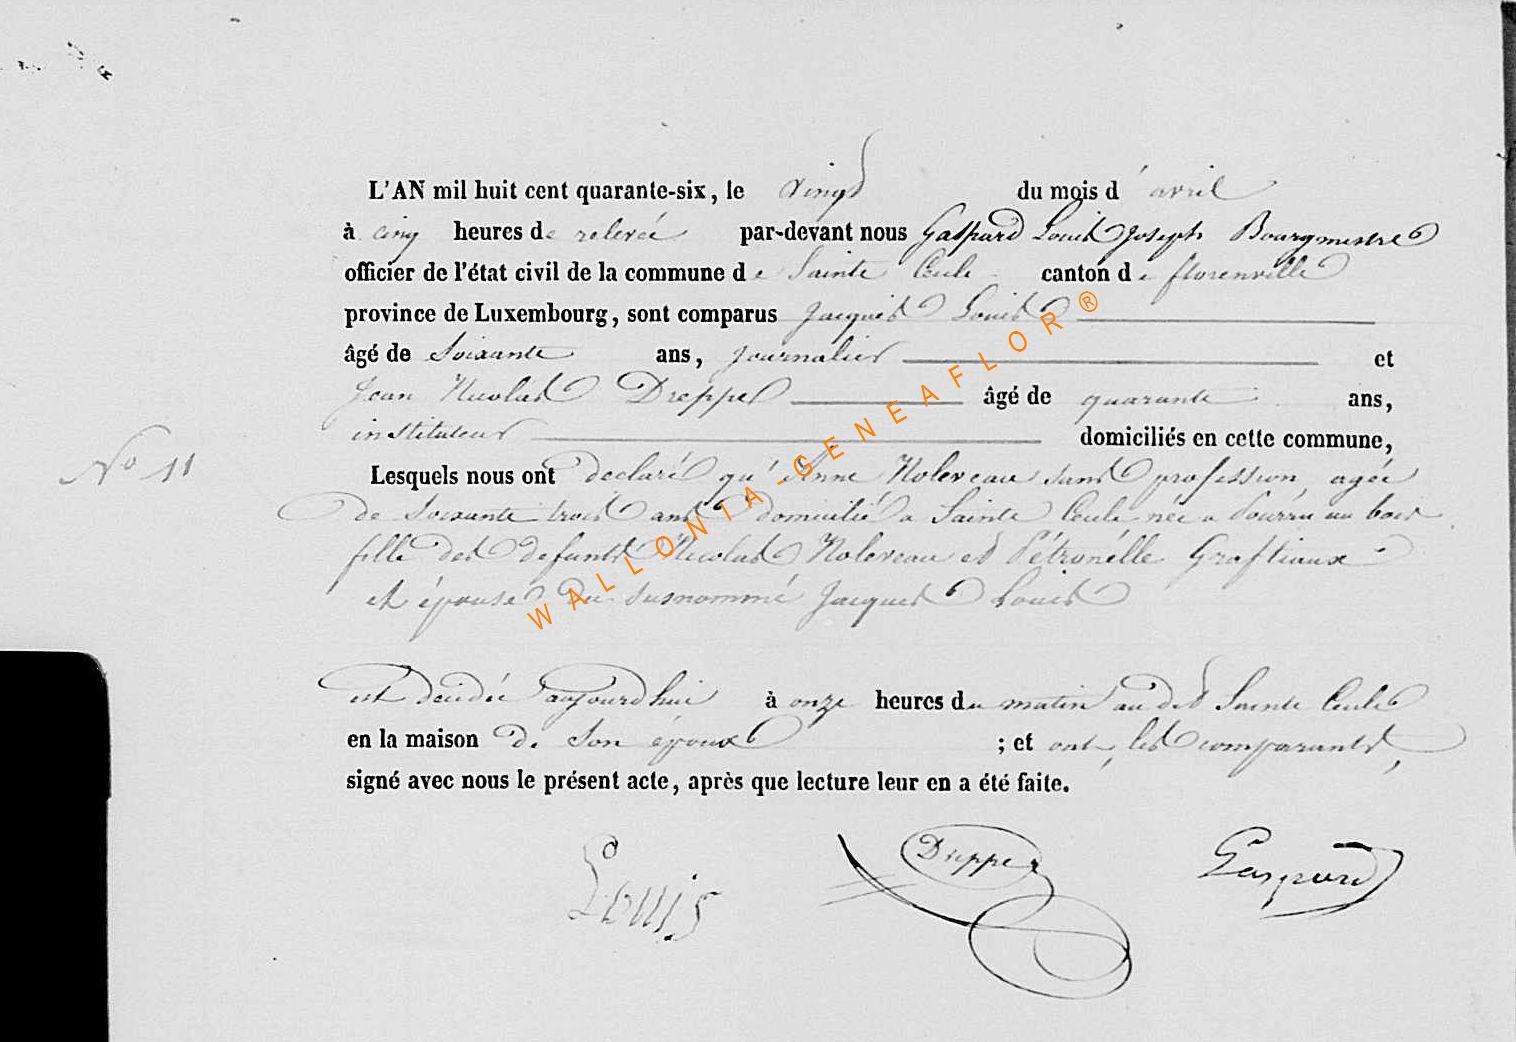 L'AN mil huit cent quarante-six, le vingt du mois d'avril
à cinq heures de relevée par-devant nous Gaspard Louis Joseph Bourgmestre
officier de l'état civil de la commune de Sainte Cecile canton de florenville
province de Luxembourg, sont comparus Jacques Louis
âgé de Soixante ans, journalier et
Jean Nicolas Dreppe âgé de quarante ans,
instituteur domiciliés en cette commune,
N° 11
Lesquels nous ont declaré qu'Anne Noleveau sans profession, agée
de Soixante trois ans domicilié a Sainte Cecile née a Pourru au bois
fille des defunts Nicolas Noleveau et Pétronélle Graftiaux
et épouse du susnommé Jacques Louis
est decidée aujourdhui à onze heures du matin au dit Sainte Cecile
en la maison de Son époux ; et ont, les comparants,
signé avec nous le présent acte, après que lecture leur en a été faite.
Louis Dreppe Gaspard
WALLONIA-GENEAFLOR®